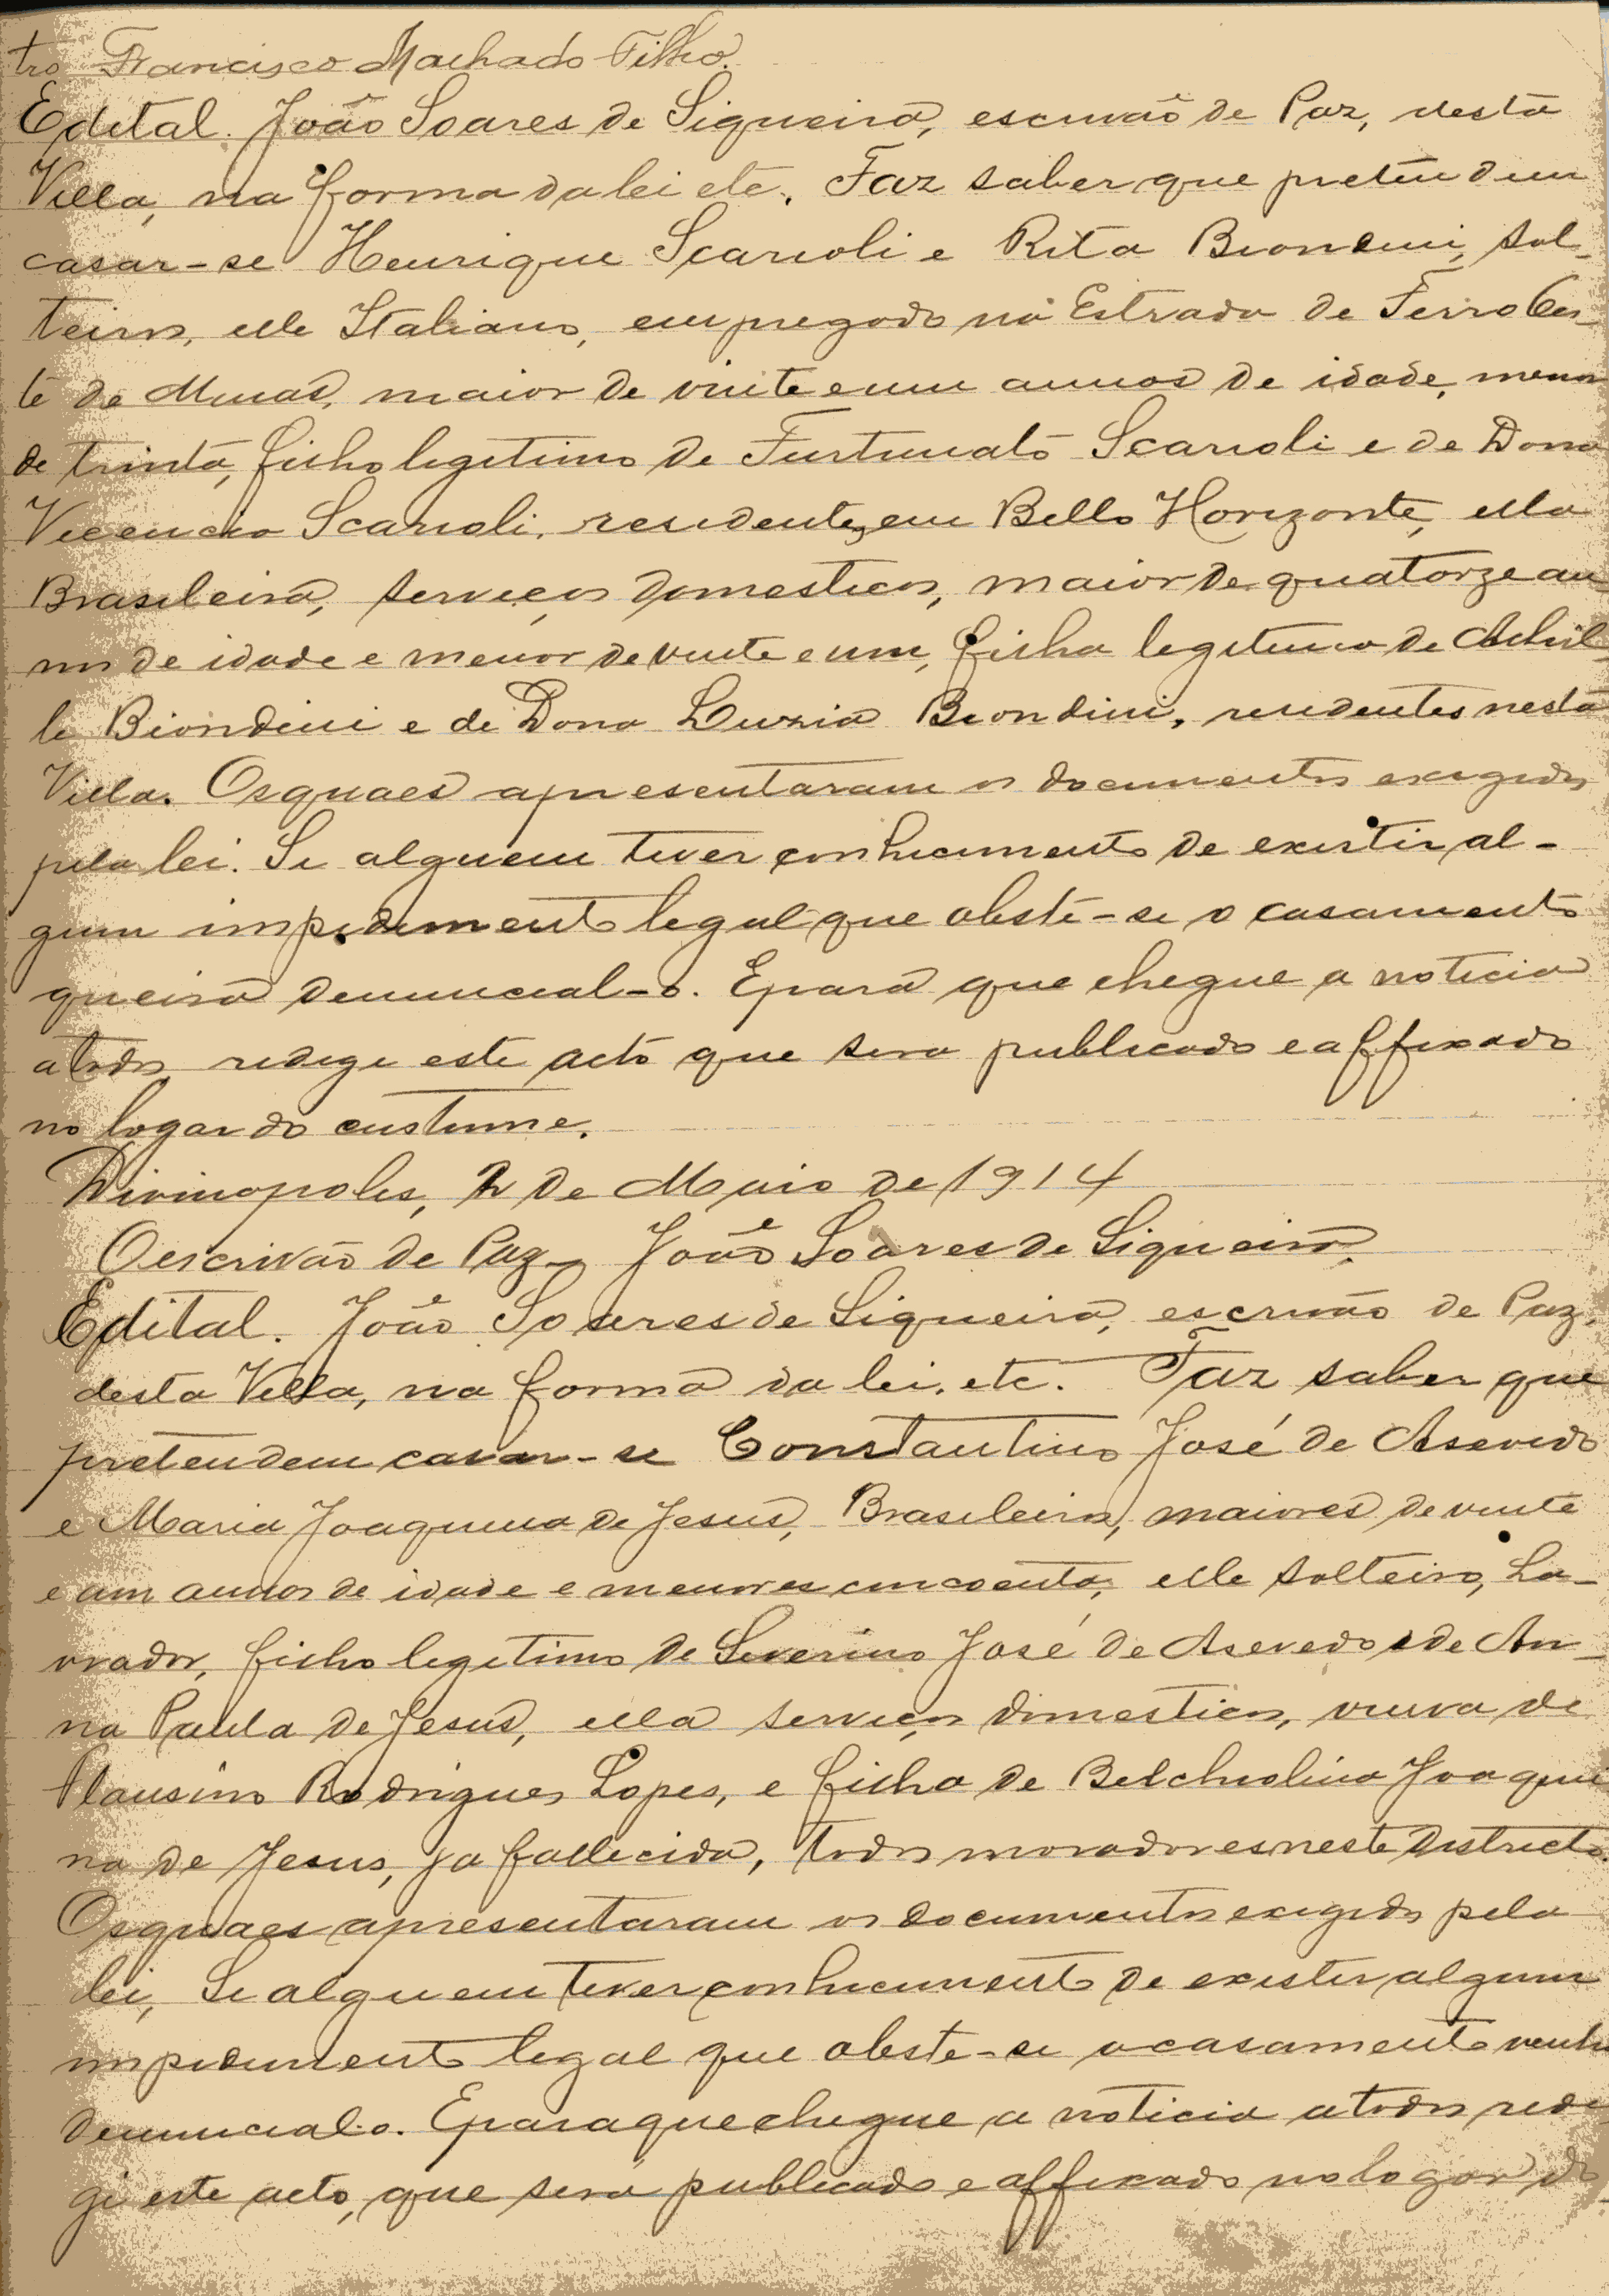 tro Francisco Machado Filho.
Edital. João Soares de Siqueira, escrivão de Paz, desta
Villa, na forma da lei etc. Faz saber que pretendem
casar-se Henrique Scarioli e Rita Biondini, sol-
teiros, elle Italiano, empregado na Estrada de Ferro Oes-
te de Minas, maior de vinte e um annos de idade, menor
de trinta, filho legitimo de Furtunato Scarioli e de Dona
Vicencia Scarioli, residentes, em Bello Horizonte, ella
Brasileira, serviços domesticos, maior de quatorze an-
nos de idade e menor de vinte e um, filha legitima de Achil-
le Biondini e de Dona Luzia Biondini, residentes nesta
Villa. Os quaes apresentaram os documentos exigidos
pela lei. Se alguem tiver conhecimento de existir al-
gum impedimento legal que obste-se o casamento
queira denuncial-o. E para que chegue a noticia
a todos, redige este acto que sera publicado e affixado
no logar do custume.
Divinopolis, 2 de Maio de 1914
O escrivão de Paz João Soares de Siqueira.
Edital. João Soares de Siqueira, escrivão de Paz,
desta Villa, na forma da lei, etc. Faz saber que
pretendem casar-se Constantino José de Asevedo
e Maria Joaquina de Jesus, Brasileiros, maiores de vinte
e um annos de idade e menores cincoenta, elle solteiro, La-
vrador, filho legitimo de Severino José de Asevedo e de An-
na Paula de Jesus, ella serviços domesticos, viuva de
Flausino Rodrigues Lopes, e filha de Belchiolina Joaqui
na de Jesus, ja fallecida, todos moradores neste Districto.
Os quaes apresentaram os documentos exigidos pela
lei, Se alguem tiver conhecimento de existir algum
impedimento legal que obste-se o casamento venha
denuncial-o. E para que chegue a noticia a todos redi
gi este acto, que sera publicado e affixado no logar do